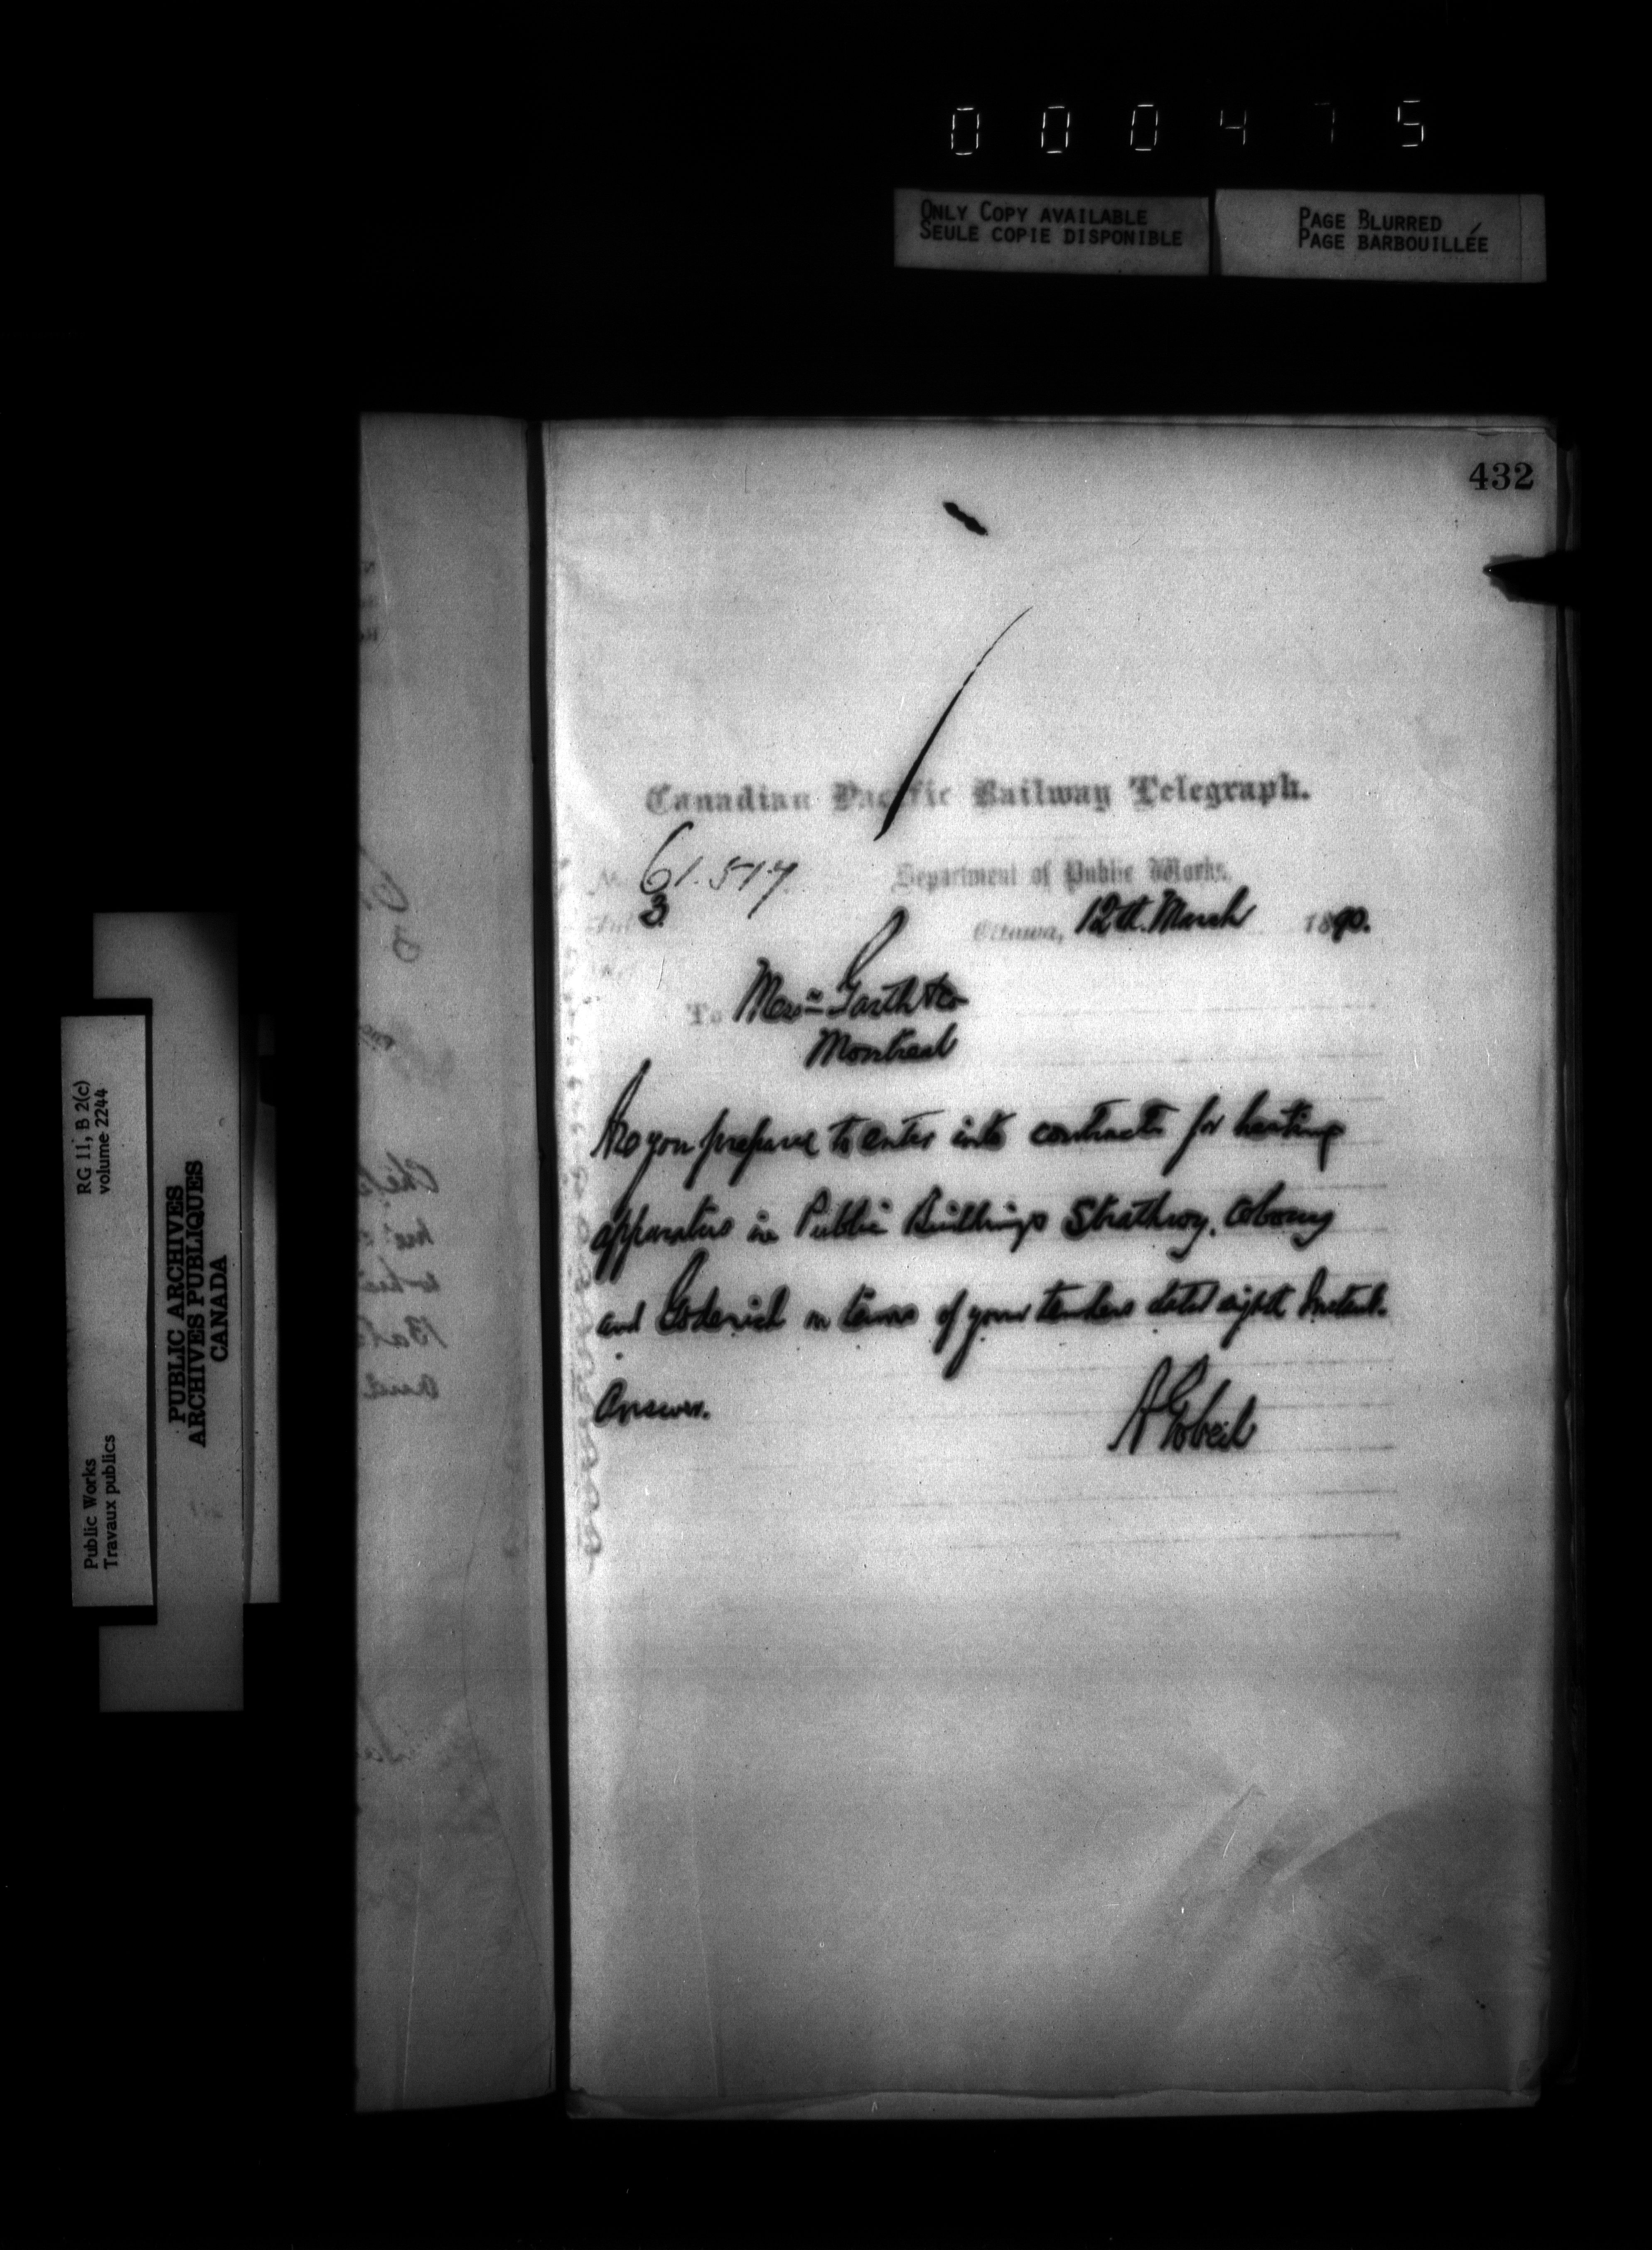 0 0 0 4 7 5
ONLY COPY AVAILABLE
SEULE COPIE DISPONIBLE
PAGE BLURRED
PAGE BARBOUILLÉE
432
Canadian Pacific Railway Telegraph.
61.517
Department of Public Works.
3
Ottawa, 12th. March 1890.
To Messrs Garth & Co
Montreal
Are you prepared to enter into contracts for heating
apparatus in Public Buildings Strathroy, Cobourg
and Goderich on terms of your tenders dated eighth Instant.
Answer.
A Gobeil
RG 11, B 2(c)
volume 2244
Public Works
Travaux publics
PUBLIC ARCHIVES
ARCHIVES PUBLIQUES
CANADA